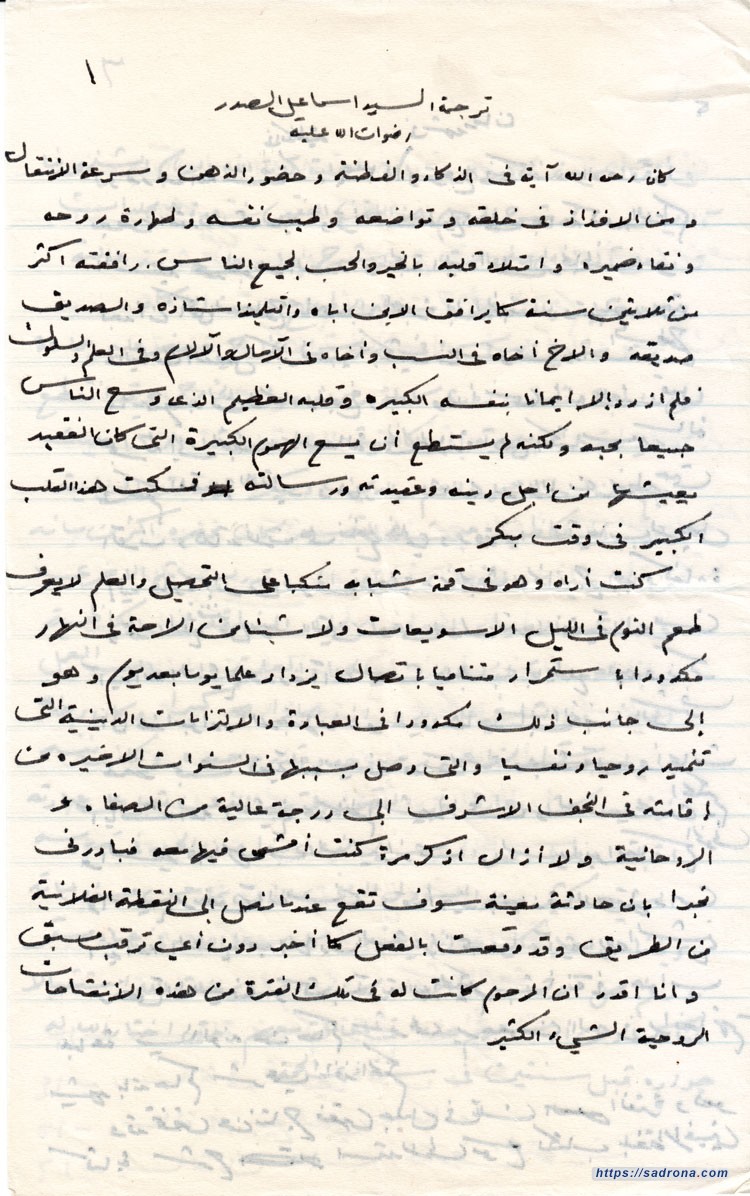 ١
ترجمة السيد اسماعيل الصدر
رضوان الله عليه
كان رحمه الله آية في الذكاء والفطنة وحضور الذهن وسرعة الانتقال
ومن الافذاذ في خلقه وتواضعه وطيب نفسه وطهارة روحه
ونقاء ضميره وامتلاء قلبه بالخير والحب لجميع الناس. رافقته اكثر
من ثلاثين سنة كما يرافق الابن اباه والتلميذ استاذه والصديق
صديقه والاخ أخاه في النسب وأخاه في الآمال والآلام وفي العلم والسلوك
فلم ازدد إلا إيمانا بنفسه الكبيرة وقلبه العظيم الذي وسع الناس
جميعا بحبه ولكنه لم يستطع أن يسع الهموم الكبيرة التي كان الفقيد
يعيشها من اجل دينه وعقيدته ورسالته فسكت هذا القلب
الكبير في وقت مبكر
كنت أراه وهو في قمة شبابه منكبا على التحصيل والعلم لا يعرف
طعم النوم في الليل الا سويعات ولا شيئا من الراحة في النهار
مكدودا باستمرار متناميا باتصال يزداد علما يوما بعد يوم وهو
إلى جانب ذلك مكدودا في العبادة والالتزامات الدينية التي
تنميه روحيا ونفسيا والتي وصل بسببها في السنوات الاخيرة من
إقامته في النجف الاشرف الى درجة عالية من الصفاء و
الروحانية ولا أزال اذكر مرة كنت أمشي فيها معه فبادرني
مخبرا بان حادثة معينة سوف تقع عندما نصل إلى النقطة الفلانية
من الطريق وقد وقعت بالفعل كما أخبر دون أي ترقب مسبق
وانا اقدر ان المرحوم كانت له في تلك الفترة من هذه الانفتاحات
الروحية الشيء الكثير
https://sadrona.com